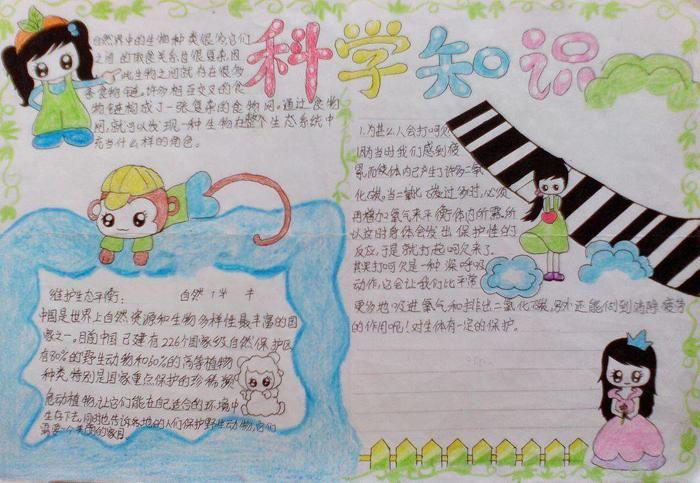 科学知识
自然界中的生物种类很多,它们
之间的取食关系也很复杂,因
此生物之间就存在很多
条食物链,许多相互交叉的食
物链构成了一张复杂的食物网。通过食物
网,就可以发现一种生物在整个生态系统中
充当什么样的角色。
1.为甚么人会打呵欠
因为当时我们感到疲
累,而使体内产生了许多二氧
化碳。当二氧化碳过多时,必须
再增加氧气来平衡体内所需,所
以这时身体会发出保护性的
反应,于是就打起呵欠来了。
其实打呵欠是一种深呼吸
动作,它会让我们比平常
更多地吸进氧气和排出二氧化碳,另外还能做到消除疲劳
的作用呢!对生体有一定的保护。
维护生态平衡: 自然
中国是世界上自然资源和生物多样性最丰富的国
家之一。目前中国已建有226个国家级自然保护区
有80%的野生动物和60%的高等植物
种类,特别是国家重点保护的珍稀濒
危动植物,让它们能在自己适合的环境中
生存下去。同时也告诉各地的人们保护野生动物,它们
需要一个美丽的家园